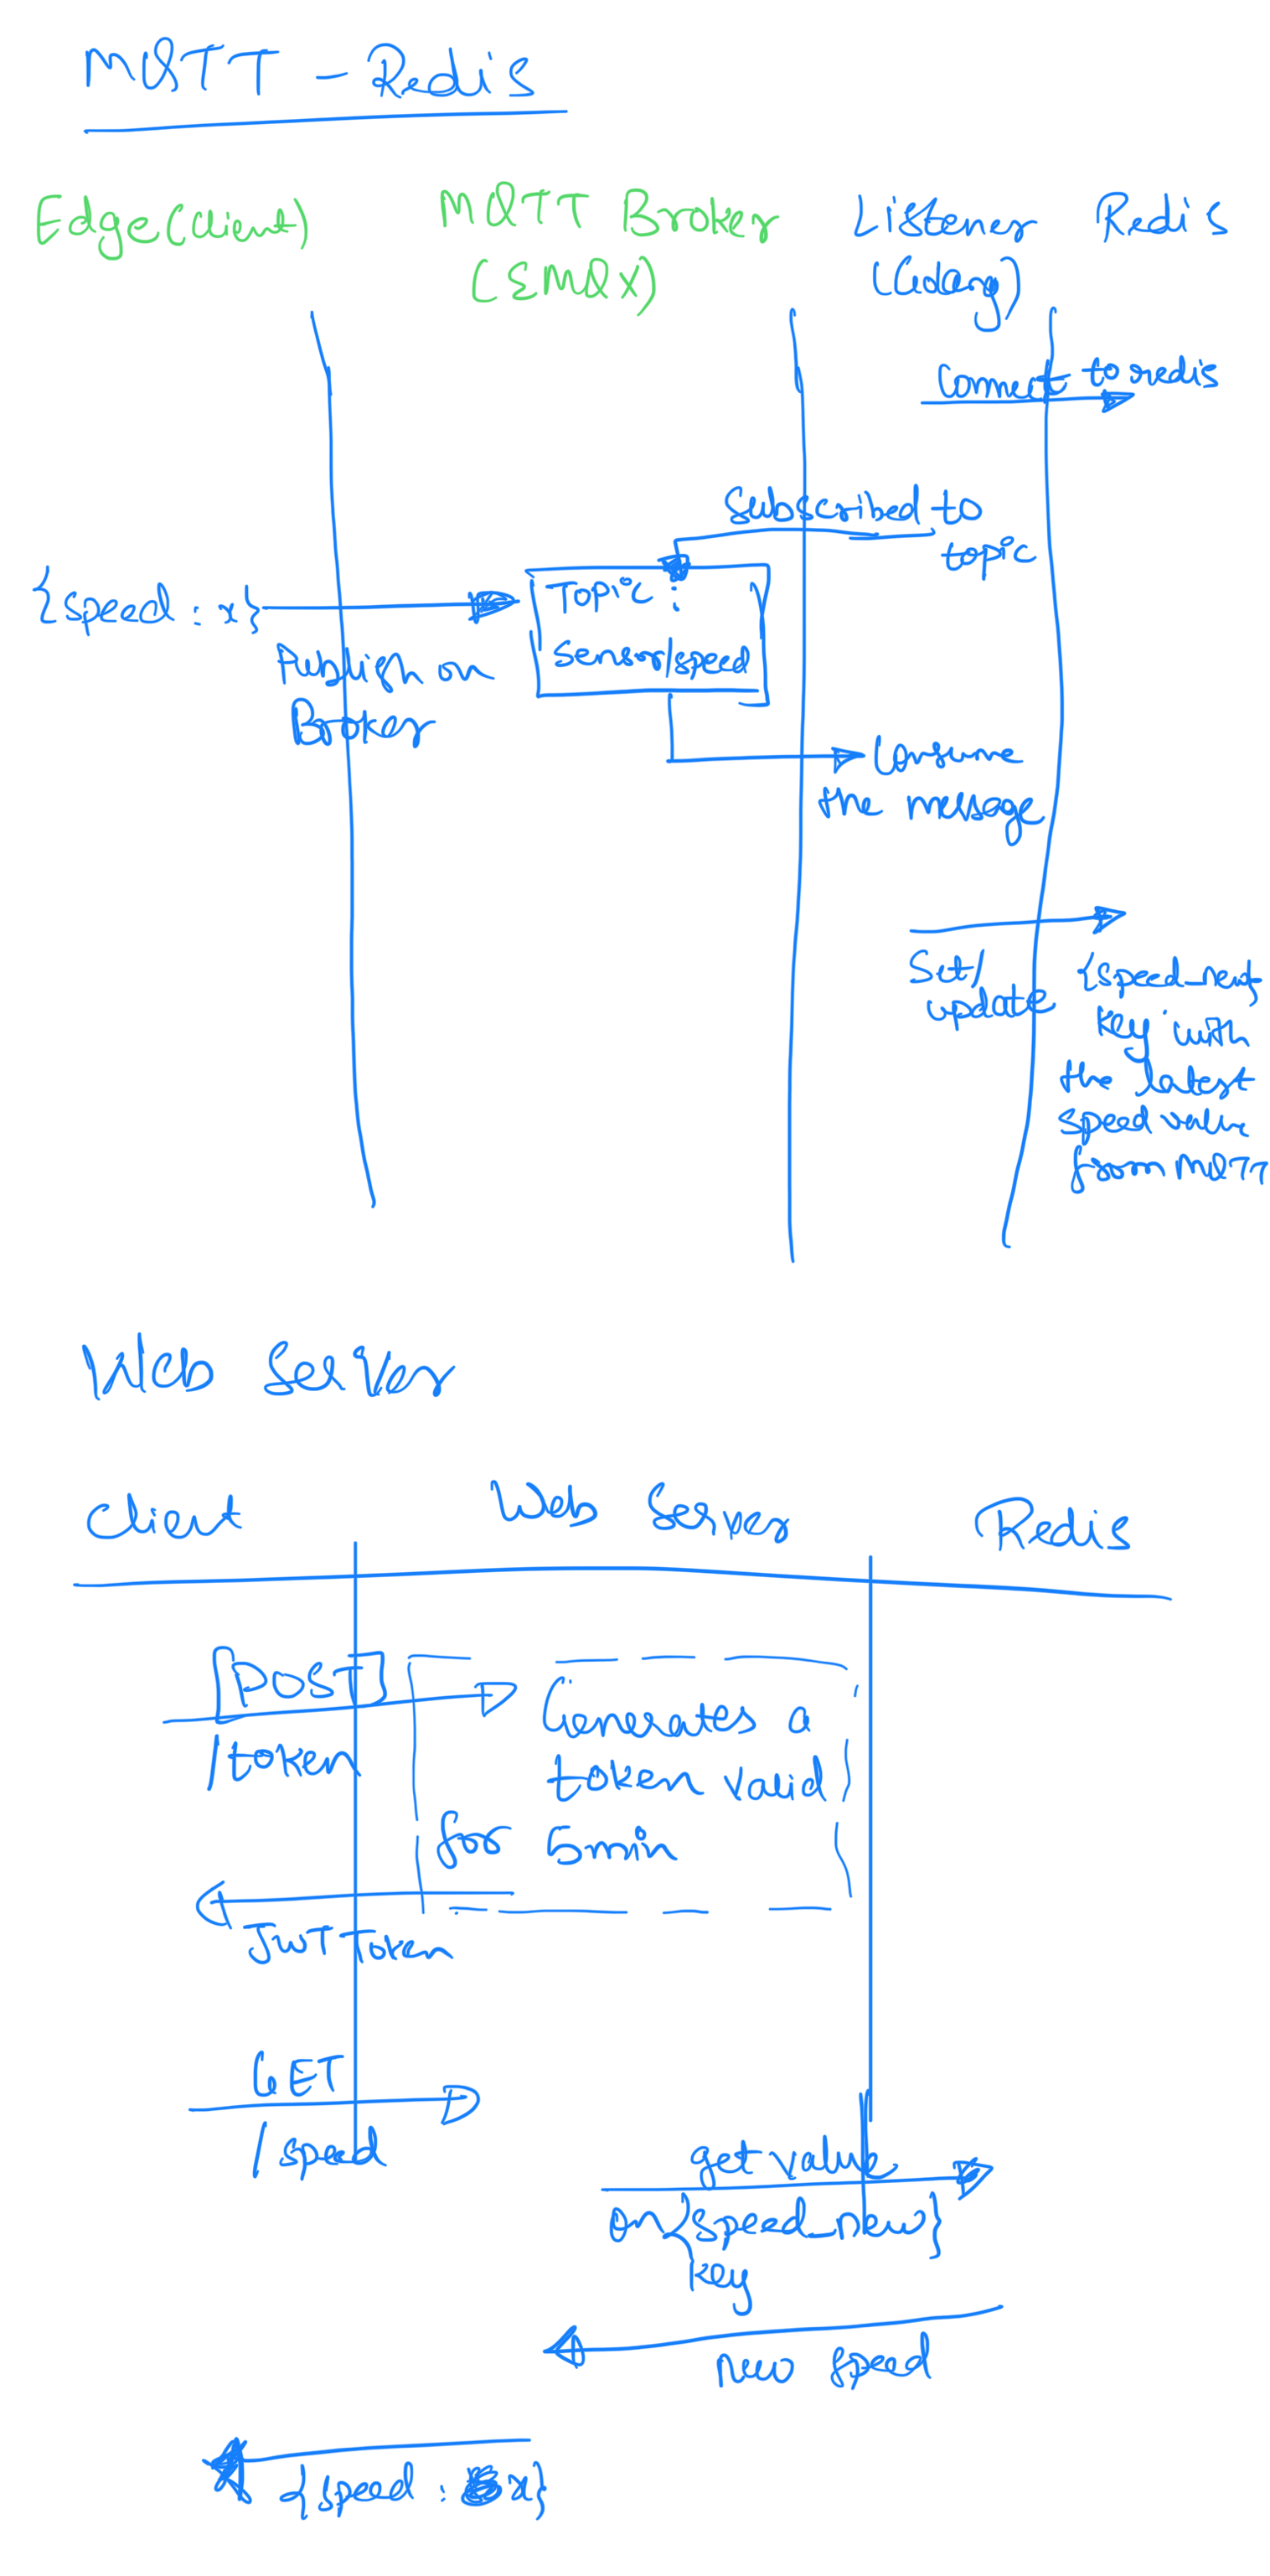 MQTT - Redis
Edge(Client)
MQTT Broker
(EMQX)
Listener
(Golang)
Redis
Connect to redis
Subscribed to
topic
{speed : x}
Publish on
Broker
Topic :
Sensor/speed
Consume
the message
Set/
update
{speed_new}
key with
the latest
speed value
from MQTT
Web Server
Client
Web Server
Redis
[POST]
/token
Generates a
token valid
for 5min
JWT Token
GET
/speed
get value
on {speed_new}
key
new speed
{speed : x}